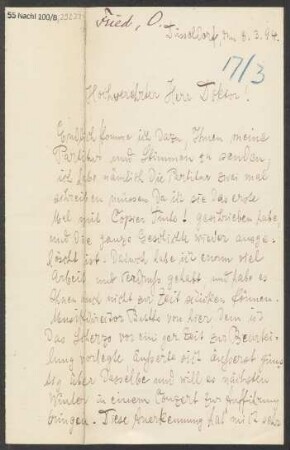 55 Nachl 100/B,
Fried, O.
Düsseldorf, den 8.3.94.
17/3
Hochverehrter Herr Doktor!
Endlich komme ich dazu, Ihnen meine
Partitur und Stimmen zu senden,
ich habe nämlich die Partitur zwei mal
schreiben müssen da ich sie das erste
Mal mit Copier Tinte! geschrieben habe,
und die ganze Geschichte wieder ausge-
löscht ist. Dadurch habe ich enorm viel
Arbeit und Verdruß gehabt und habe es
Ihnen auch nicht zur Zeit schicken können.
Musikdirector Buths von hier dem ich
das Scherzo vor einiger Zeit zur Beurtei-
lung vorlegte äußerte sich äußerst güns-
tig über dasselbe und will es nächsten
Winter in einem Concert zur Aufführung
bringen. Diese Anerkennung hat mich sehr